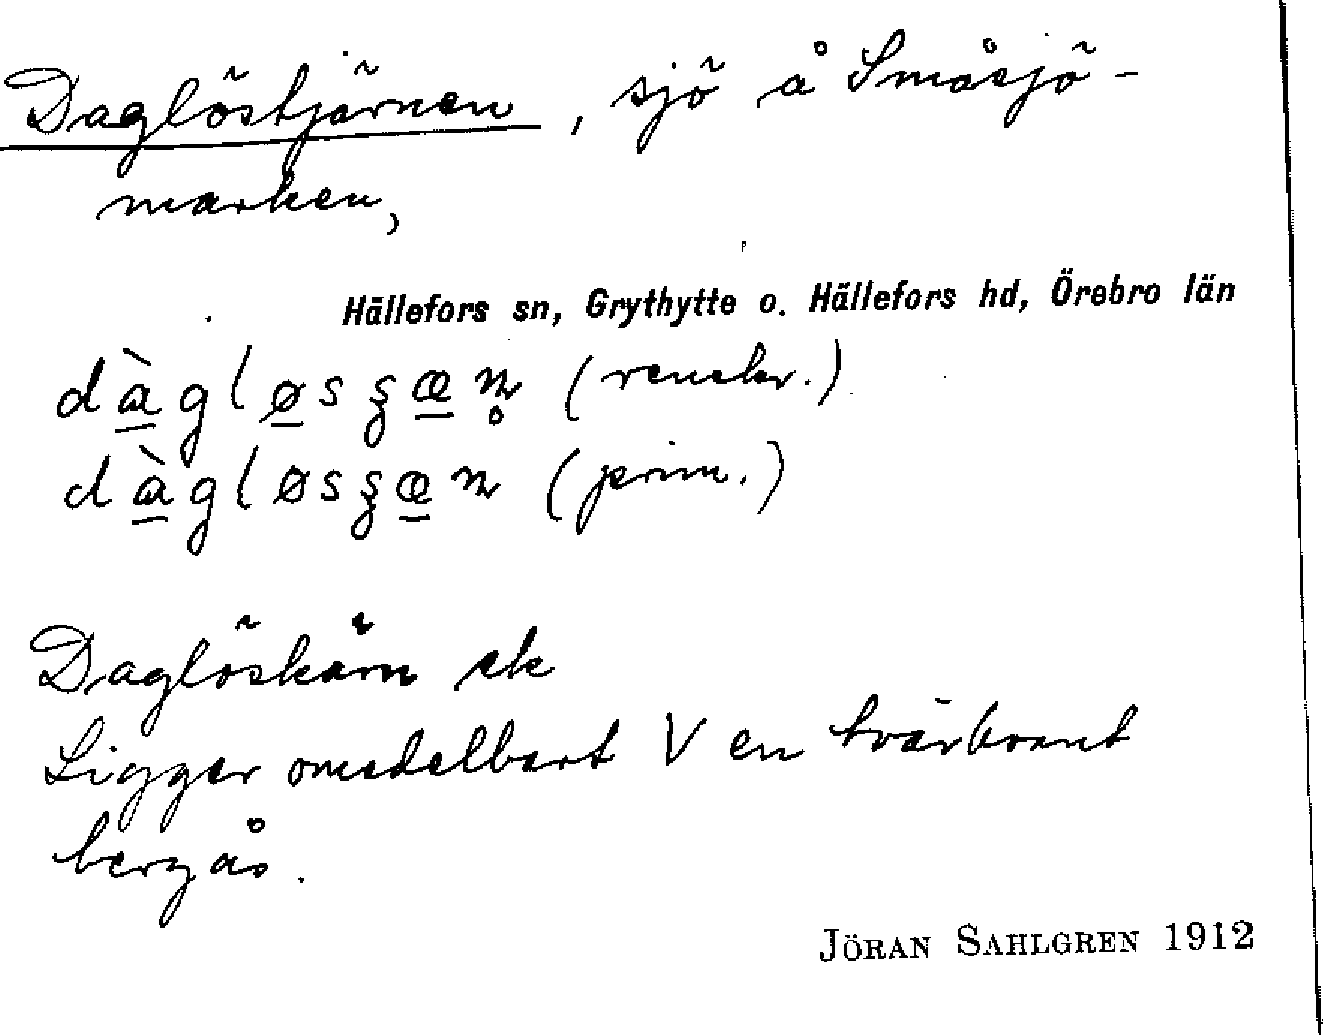 Daglöstjärnen, sjö å Småsjö-
marken,
Hällefors sn, Grythytte o. Hällefors hd, Örebro län
dàgløsʂæn̥ (renskr.)
dàgløsʂæn (prim.)
Daglöskärn ek
Ligger omedelbart V en tvärbrant
bergås.
JÖRAN SAHLGREN 1912